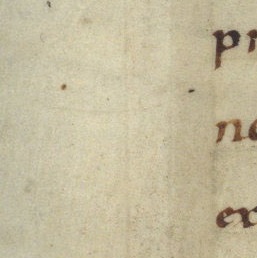 pr
ne
ex